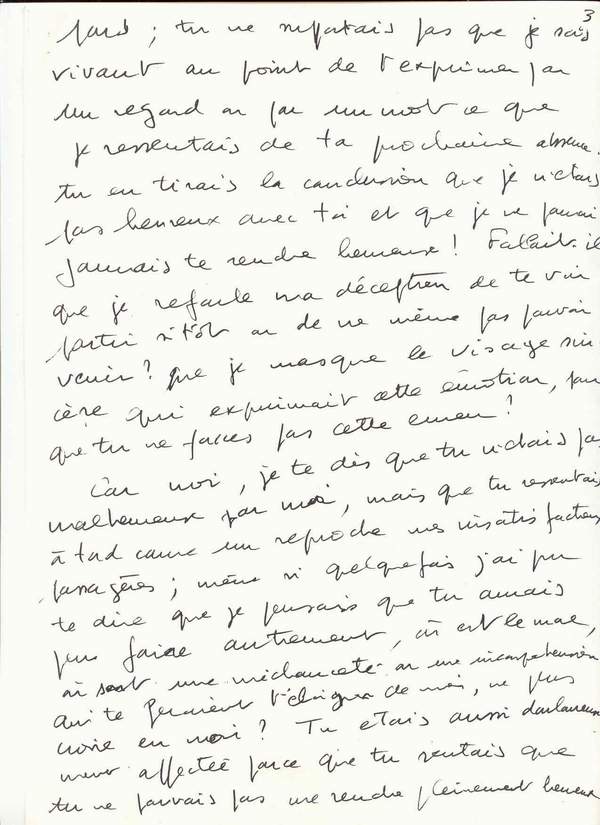 3
tard ; tu ne supportais pas que je sois
vivant au point de t'exprimer par
un regard ou par un mot ce que
je ressentais de ta prochaine absence.
tu en tirais la conclusion que je n'étais
pas heureux avec toi et que je ne pouvai
jamais te rendre heureux ! Fallait-il
que je refoule ma déception de te voir
partir si tôt ou de ne même pas pouvoir
venir ? que je masque le visage sin
cère qui exprimait cette émotion, pour
que tu ne fasses pas cette erreur ?
Car moi, je te dis que tu n'étais pas
malheureux par moi, mais que tu ressentais
à tort comme un reproche mes insatisfactions
passagères ; même si quelquefois j'ai pu
te dire que je pensais que tu aurais
pu faire autrement, où est le mal,
où sont une méchanceté ou une incompréhension
qui te feraient t'éloigner de moi, ne plus
croire en moi ? Tu étais aussi douloureux
ment affecté parce que tu sentais que
tu ne pouvais pas me rendre pleinement heureux